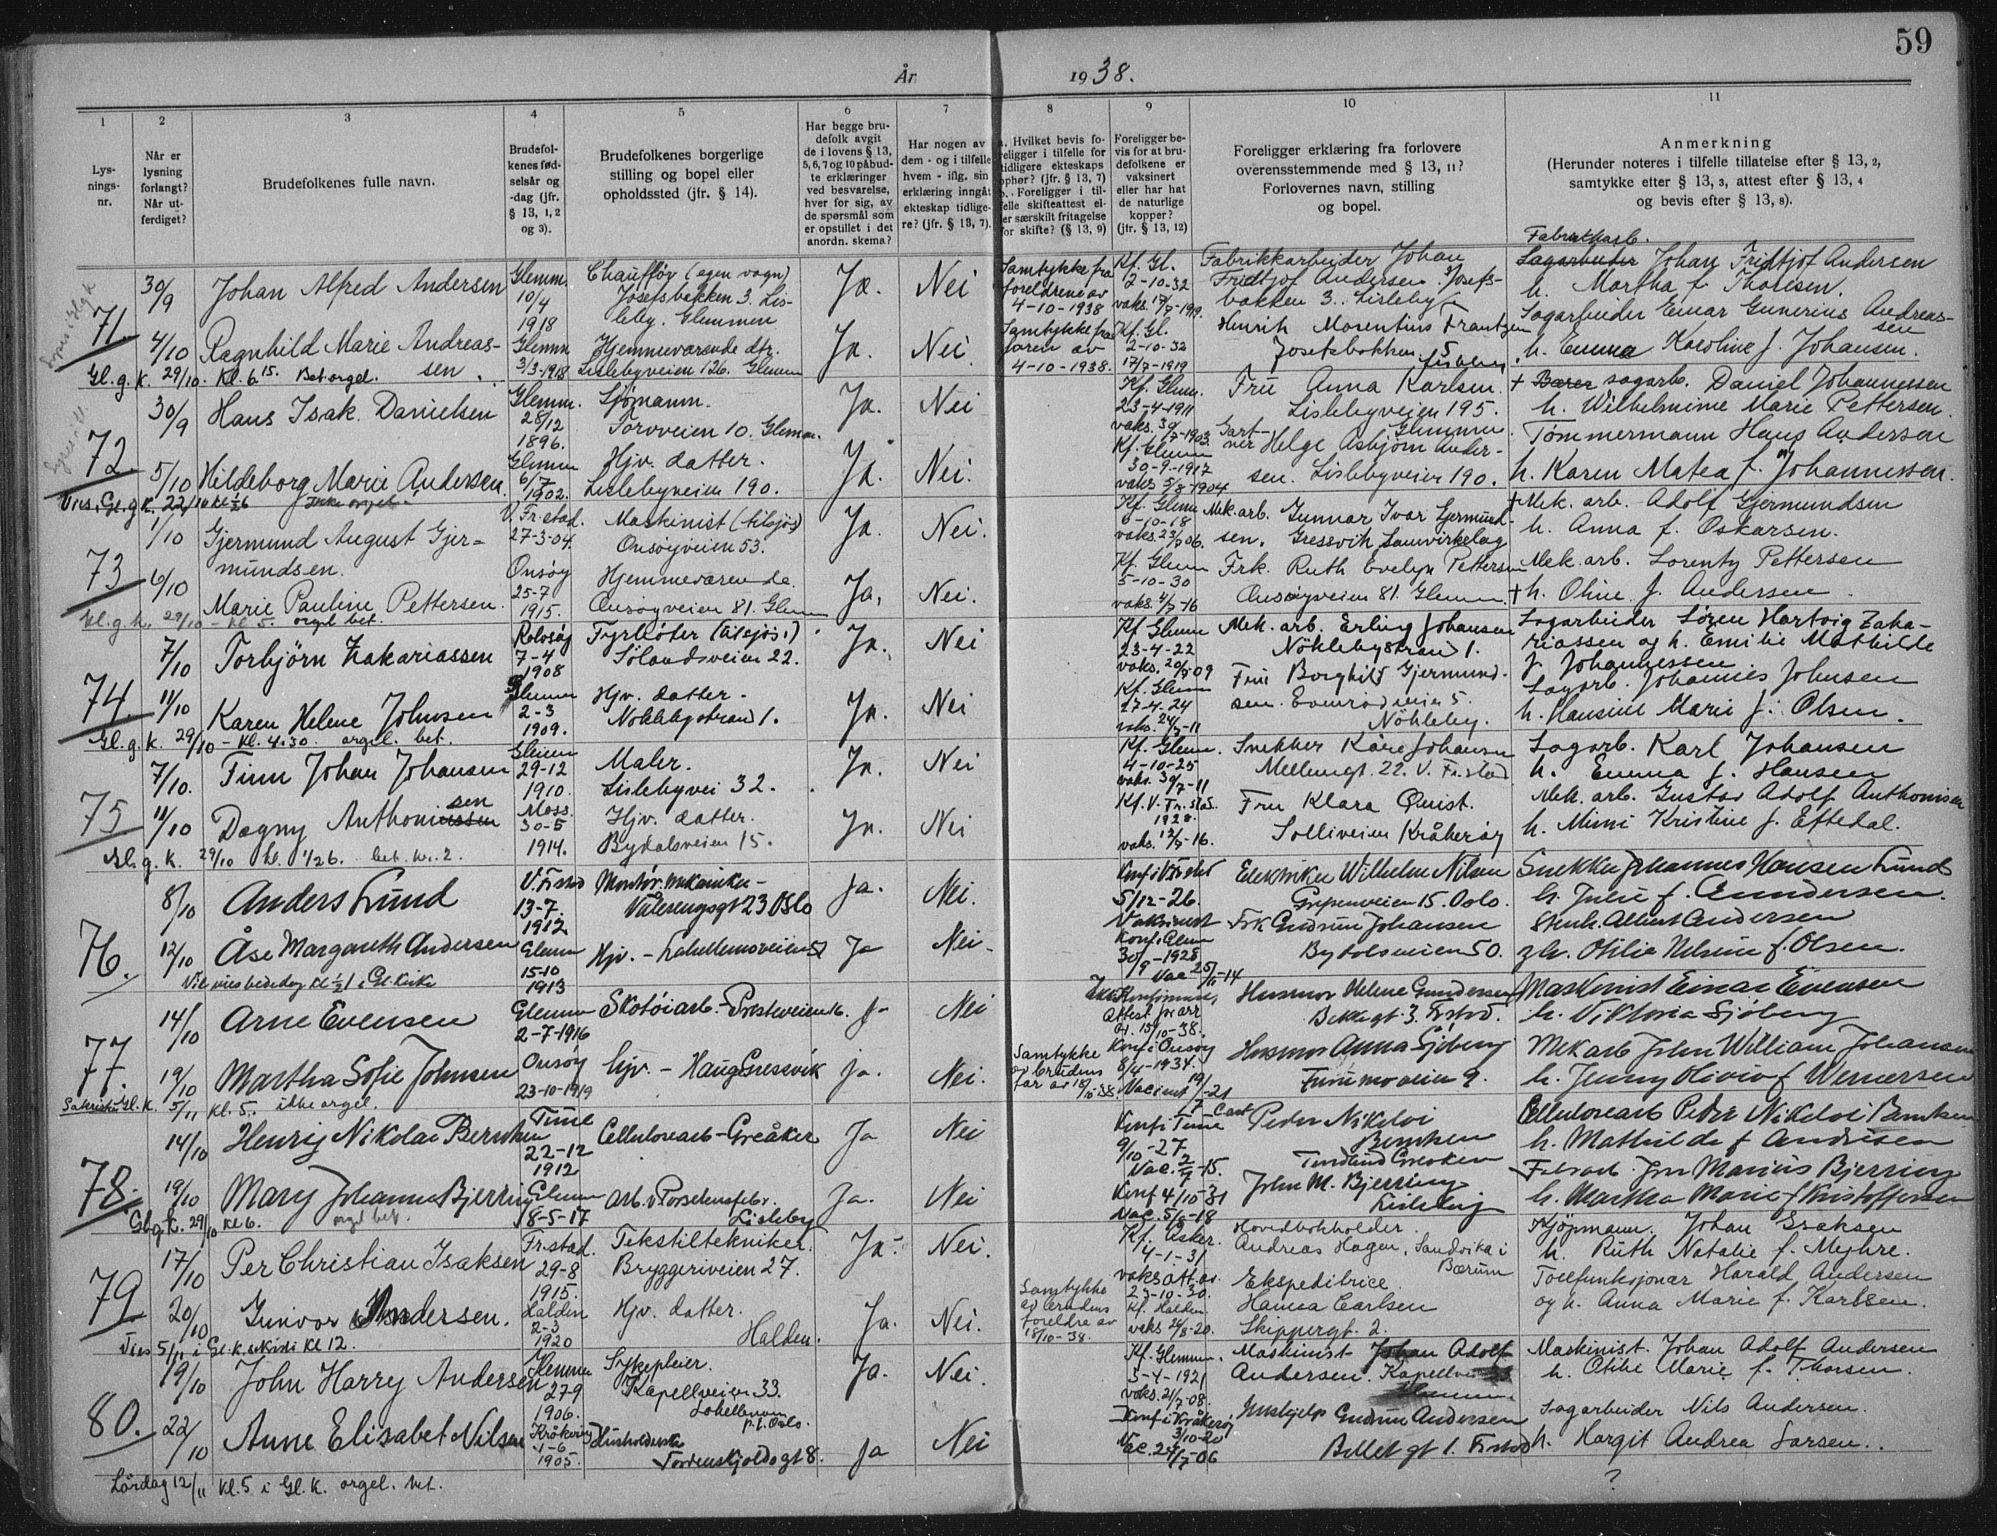 59
År 1938.
1 2 3 4 5 6 7 8 9 10 11
Lys-
nings-
nr.
Når er
lysning
forlangt?
Når ut-
ferdiget?
Brudefolkenes fulle navn.
Brudefol-
kenes fød-
selsår og
-dag (jfr.
§ 13, 1, 2
og 3).
Brudefolkenes borgerlige
stilling og bopel eller
opholdssted (jfr. § 14).
Har begge bru-
defolk avgit
de i lovens § 13,
5, 6, 7 og 10 påbud-
te erklæringer
ved besvarelse,
hver for sig, av
de spørsmål som
er opstillet i det
anordn. skema?
Har nogen av
dem - og i tilfelle
hvem - iflg. sin
erklæring inngått
ekteskap tidlige-
re? (jfr. § 13, 7).
a. Hvilket bevis fo-
religger i tilfelle for
tidligere ekteskaps
ophør? (jfr. § 13, 7)
b. Foreligger i til-
felle skifteattest el-
ler særskilt fritagelse
for skifte? (§ 13, 9)
Foreligger be-
vis for at bru-
defolkene er
vaksinert
eller har hat
de naturlige
kopper?
(jfr. § 13, 12)
Foreligger erklæring fra forlovere
overensstemmende med § 13, 11?
Forlovernes navn, stilling
og bopel.
Anmerkning
(Herunder noteres i tilfelle tillatelse efter § 13, 2,
samtykke efter § 13, 3, attest efter § 13, 4
og bevis efter § 13, 8).
71.
30/9 Johan Alfred Andersen Glemm. 10/4 1918 Chauffør (egen vogn) Josefsbekken 3. Lis-
leby. Glemmen Ja. Nei Samtykke fra
foreldrene av
4-10-1938 Kf. Gl.
2-10-32
vaks. 17/7-1919. Fabrikkarbeider Johan
Fridtjof Andersen. Josefs-
bakken 3. Lisleby Fabrikkarb.
Sagarbeider Johan Fridtjof Andersen
h. Martha f. Thoresen.
4/10 Ragnhild Marie Andreas-
sen. Glemm 3/3-1918 Hjemmeværende dtr.
Lislebyveien 126. Glemm Ja. Nei. Samtykke fra
faren av
4-10-1938. Kf. Gl.
2-10-32
17/7-1919 Henrik Mosentius Frantzen
Josefsbakken 5 Lisleby Sagarbeider Einar Gunerius Andreas-
sen
h. Emma Karoline f. Johansen.
Gl. g. k. 29/10. Kl. 6.15. Bet. orgel.
72
30/9 Hans Isak Danielsen Glemm. 28/12 1896. Sjømann.
Torvveien 10. Glemm. Ja. Nei Kf. Glemm.
23-4-1911
vaks. 30/7-1903. Fru Anna Karlsen
Lislebyveien 195.
Glemmen + Bærer sagarb. Daniel Johannessen
h. Wilhelmine Marie Pettersen.
5/10 Hildeborg Marie Andersen. Glemm 6/7 1902. Hjv. datter.
Lislebyveien 190. Ja. Nei. Kf. Glemm
30-9-1917
vaks 5/8-1904 Gart-
ner Helge Asbjørn Ander-
sen. Lislebyveien 190. Tømmermann Hans Andersen
h. Karen Matea f. Johannessen.
Vies, Gl. g. k. 22/10 kl 1/2 6 Ikke orgel.
73
1/10 Gjermund August Gjer-
mundsen. V. Fr.stad. 27-3-04. Maskinist (tilsjøs)
Onsøyveien 53. Ja. Nei. Kf. Glemm
6-10-18
vaks. 23/7 06. Mek. arb. Gunnar Ivar Gjermund-
sen. Gressvik Samvirkelag + Mek. arb. Adolf Gjermundsen
h. Anna f. Oskarsen.
6/10 Marie Pauline Pettersen. Onsøy 25-7 1915. Hjemmeværende.
Onsøyveien 81. Glemm Ja, Nei. Kf. Glemm
5-10-30
vaks. 4/7-16 Frk. Ruth Evelyn Pettersen
Onsøyveien 81. Glemm. Mek. arb. Lorentz Pettersen
+ h. Oline f. Andersen.
Gl. g. k. 29/10 - kl. 5. orgel bet.
74.
7/10 Torbjørn Zakariassen Rolvsøy 7-4 1908 Fyrbøter (tilsjøs.)
Sølandsveien 22. Ja. Nei Kf Glemm
23-4-22
vaks. 20/7 09 Mek. arb. Erling Johansen
Nøklebystrand 1. Sagarbeider Søren Hartvig Zaka-
riassen og h. Emilie Mathilde
f. Johannessen
11/10 Karen Helene Johnsen Glemm 2-3 1909. Hjv. datter.
Nøklebystrand 1. Ja. Nei Kf. Glemm
27-4-24
vaks. 24/7-11 Fru Borghild Gjermund-
sen. Evenrødveien 5
Nøkleby. Sagarb. Johannes Johnsen
h. Hansine Marie f. Olsen.
Gl. g. k. 29/10 - kl. 4.30. orgel. bet.
75
7/10. Finn Johan Johansen Glemm 29-12 1910. Maler.
Lislebyvei 32. Ja. Nei Kf. Glemm.
4-10-25
vaks. 30/7-11 Snekker Kåre Johansen
Mellemgt. 22. V. Fr.stad Sagarb. Karl Johansen
h. Emma f. Hansen
11/10 Dagny Anthonissen sen Moss. 30-5 1914. Hjv. datter.
Bydalsveien 15. Ja. Nei Kf. V. Fr. stad.
1928.
vaks. 12/7-16. Fru Klara Qvist.
Solliveien Kråkerøy Mek. arb. Gustav Adolf Anthonisen
h. Mimi Kristine f. Eftedal.
Gl. g. k. 29/10 kl. 1/2 6. bet. kr. 2.
76.
8/10 Anders Lund V. Fr.stad 13-7. 1912 Montør, mekaniker -
Vålerengsgt 23 Oslo Ja. Nei. Konf i V. Fr.stad
5/12-26.
Vaksinert Elektriker Wilhelm Nilsen
Gripenveien 15. Oslo. Snekker Johannes Hansen Lund
h. Julie f. Gundersen.
12/10 Åse Margareth Andersen Glemm 15-10 1913 Hjv. - Ja Nei. Konf i Glem
30/9-1928
Vac 25/11-14 Frk Gudrun Johansen
Bydalsveien 50. Albert Andersen
h. Otilie Nilsine f. Olsen.
Vil vies bededag kl 1/2 1 i Gl. Kirke
77.
14/10 Arne Evensen Glemm 2-7-1916 Skotøiarb - Prestveien 16. Ja Nei
Attest fra arr
av 15/10-38. Husmor Helene Gundersen
3. Fr.stad. Maskinist Einar Evensen
h. Viktoria Sjøberg
19/10 Martha Sofie Johnsen Onsøy 23-10-1919 hjv. - Haug Gressvik ja. Nei. Samtykke
av brudens
far av 18/10-38. Konf i Onsøy
8/4-1934.
Vacinert 19/7-21 Husmor Anna Sjøberg
Furumoveien 9. Mek arb John William Johansen
h. Jenny Olivia f Wernersen
Sakristi Gl. K. 5/11 Kl. 5. ikke orgel.
78.
14/10 Henry Nikolai Berntsen Tune 22-12 1912 Cellulosearb - Greåker Ja Nei Konf i Tune
9/10-27
Vac. 2/9-15. Peder Nikolai
Berntsen
Greåker Cellulosearb Peder Nikolai Berntsen
h. Mathilde f Andersen
19/10 Mary Johanne Bjerring Glemm 18-5-17 arb. v Porselensfabr.
Lisleby Ja. Nei Konf 4/10-31
Vac. 5/9-18 John M. Bjerring
Lisleby Fabrarb. John Marius Bjerring
h. Martha Marie f Kristoffersen
Gl. g. k. 29/10 Kl 6. orgel bet.
79
17/10 Per Christian Isaksen Fr.stad. 29-8 1915. Tekstiltekniker.
Bryggeriveien 27. Ja. Nei. Kf. Asker.
4-1-31
vaks att. av
23-10-30. Hovedbokholder.
Andreas Hagen, Sandvika i
Bærum Kjøpmann. Johan Isaksen
h. Ruth Natalie f. Myhre.
20/10 Gunvor Andersen. Halden 2-3 1920 Hjv. datter.
Halden. Ja. Nei. Samtykke
av brudens
foreldre av
18/10-38. Kf. Halden
vaks 24/8-20. Ekspeditrice
Hanna Carlsen
Skippergt. 2. Tollfunksjonær Harald Andersen
og h. Anna Marie f. Karlsen.
Vies 5/11 i Gl. k. sakristi Kl 12.
80.
19/10 John Harry Andersen Glemmen 27-9 1906. Sykepleier.
Kapellveien 33.
Oslo. Ja. Nei. Kf. Glemm.
3-4-1921
vaks. 21/7-08. Maskinist Johan Adolf
Andersen. Kapellvei 33
Glemmen Maskinist. Johan Adolf Andersen
h. Otilie Marie f. Thorsen.
22/10 Anne Elisabet Nilsen Kråkerøy 1-6-1905. Husholderske
Tordenskjoldsgt 8. Ja Nei Konf i Kråkerøy
3/10-20
Vac. 24/7-06 Gudrun Andersen
1. Fr.stad Sagarbeider Nils Andersen.
h. Hargit Andrea Larsen.
?
Lørdag 12/11 Kl. 5 i Gl. K. orgel. bet.